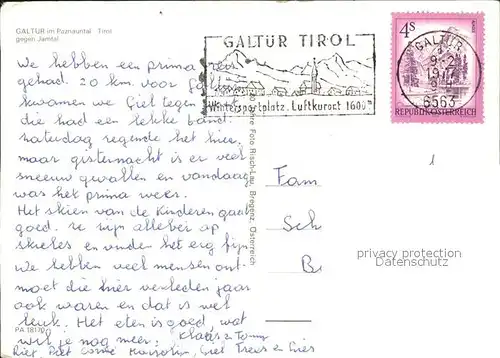 GALTÜR im Paznauntal Tirol
gegen Jamtal
GALTÜR TIROL
Wintersportplatz. Luftkurort 1600m
4S
REPUBLIK ÖSTERREICH
GALTÜR
6563
We hebben een prima reis
gehad. 20 km. voor
kwamen we Giel tegen
die had een lekke band.
Zaterdag regende het hier,
maar gisternacht is er veel
sneeuw gevallen en vandaag
was het prima weer.
Het skien van de kinderen gaat
goed. ze zijn allebei op
skieles en vinden het erg fijn
We hebben veel mensen ont-
moet die hier verleden jaar
ook waren en dat is wel
leuk. Het eten is goed, wat
wil je nog meer. Klaas en Tonny
Riet, Piet
Foto Risch-Lau, Bregenz, Österreich
Fam
Sch
B
privacy protection
Datenschutz
PA 18170